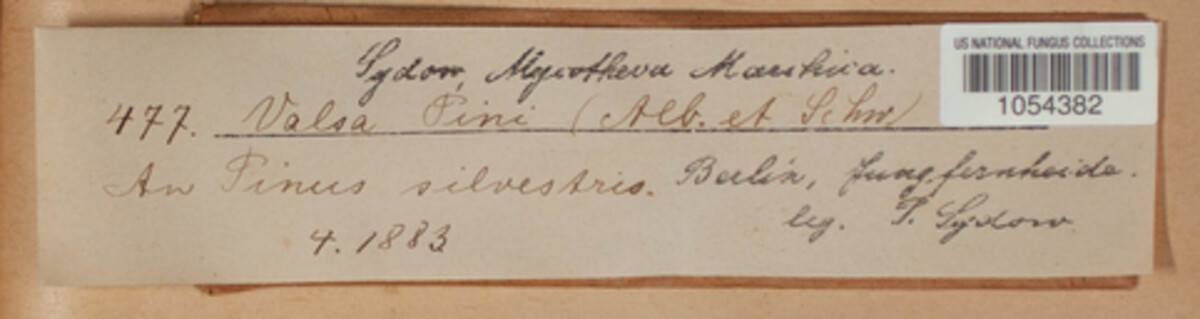 Sydow, Mycotheca Marchica.
US NATIONAL FUNGUS COLLECTIONS
1054382
477. Valsa Pini (Alb. et Schw)
An Pinus silvestris. Berlin, Jungfernheide.
4. 1883 leg. P. Sydow